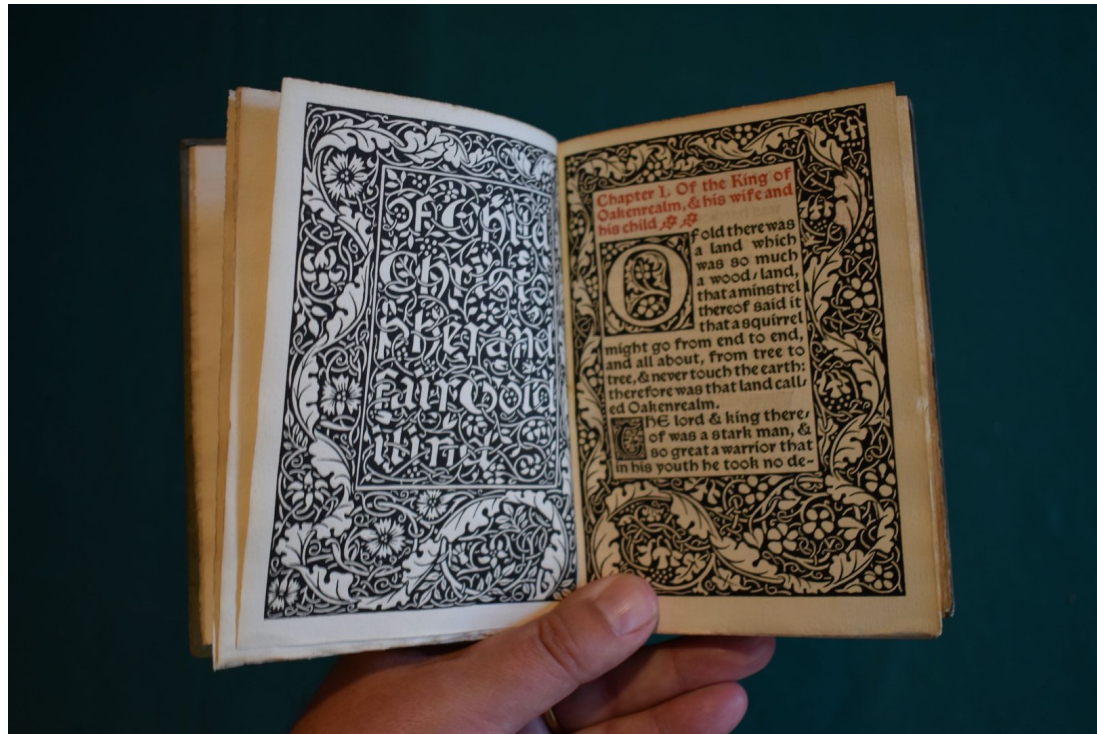 Of Child
Christo
pher and
fair Gold
ilind
Chapter I. Of the King of
Oakenrealm, & his wife and
his child
Of old there was
a land which
was so much
a wood/land,
that a minstrel
thereof said it
that a squirrel
might go from end to end,
and all about, from tree to
tree, & never touch the earth:
therefore was that land call/
ed Oakenrealm.
THE lord & king there/
of was a stark man, &
so great a warrior that
in his youth he took no de-